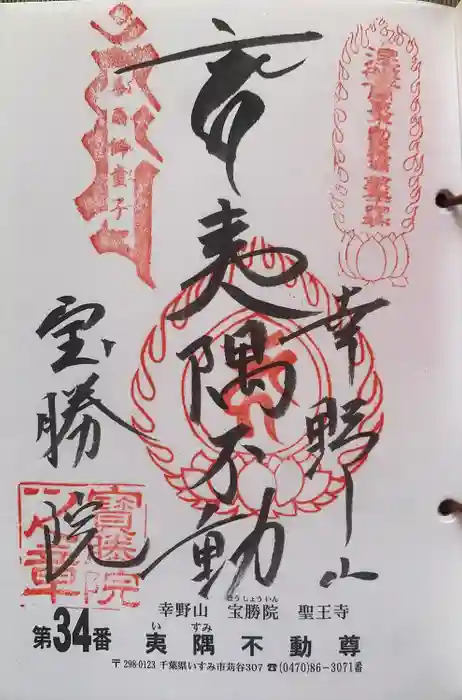 幸野山
夷隅不動
宝勝院
寳勝院
幸野山 宝勝院 聖王寺
ほうしょういん
第34番 夷隅不動尊
い すみ
〒298-0123 千葉県いすみ市苅谷307 ☎(0470)86-3071番